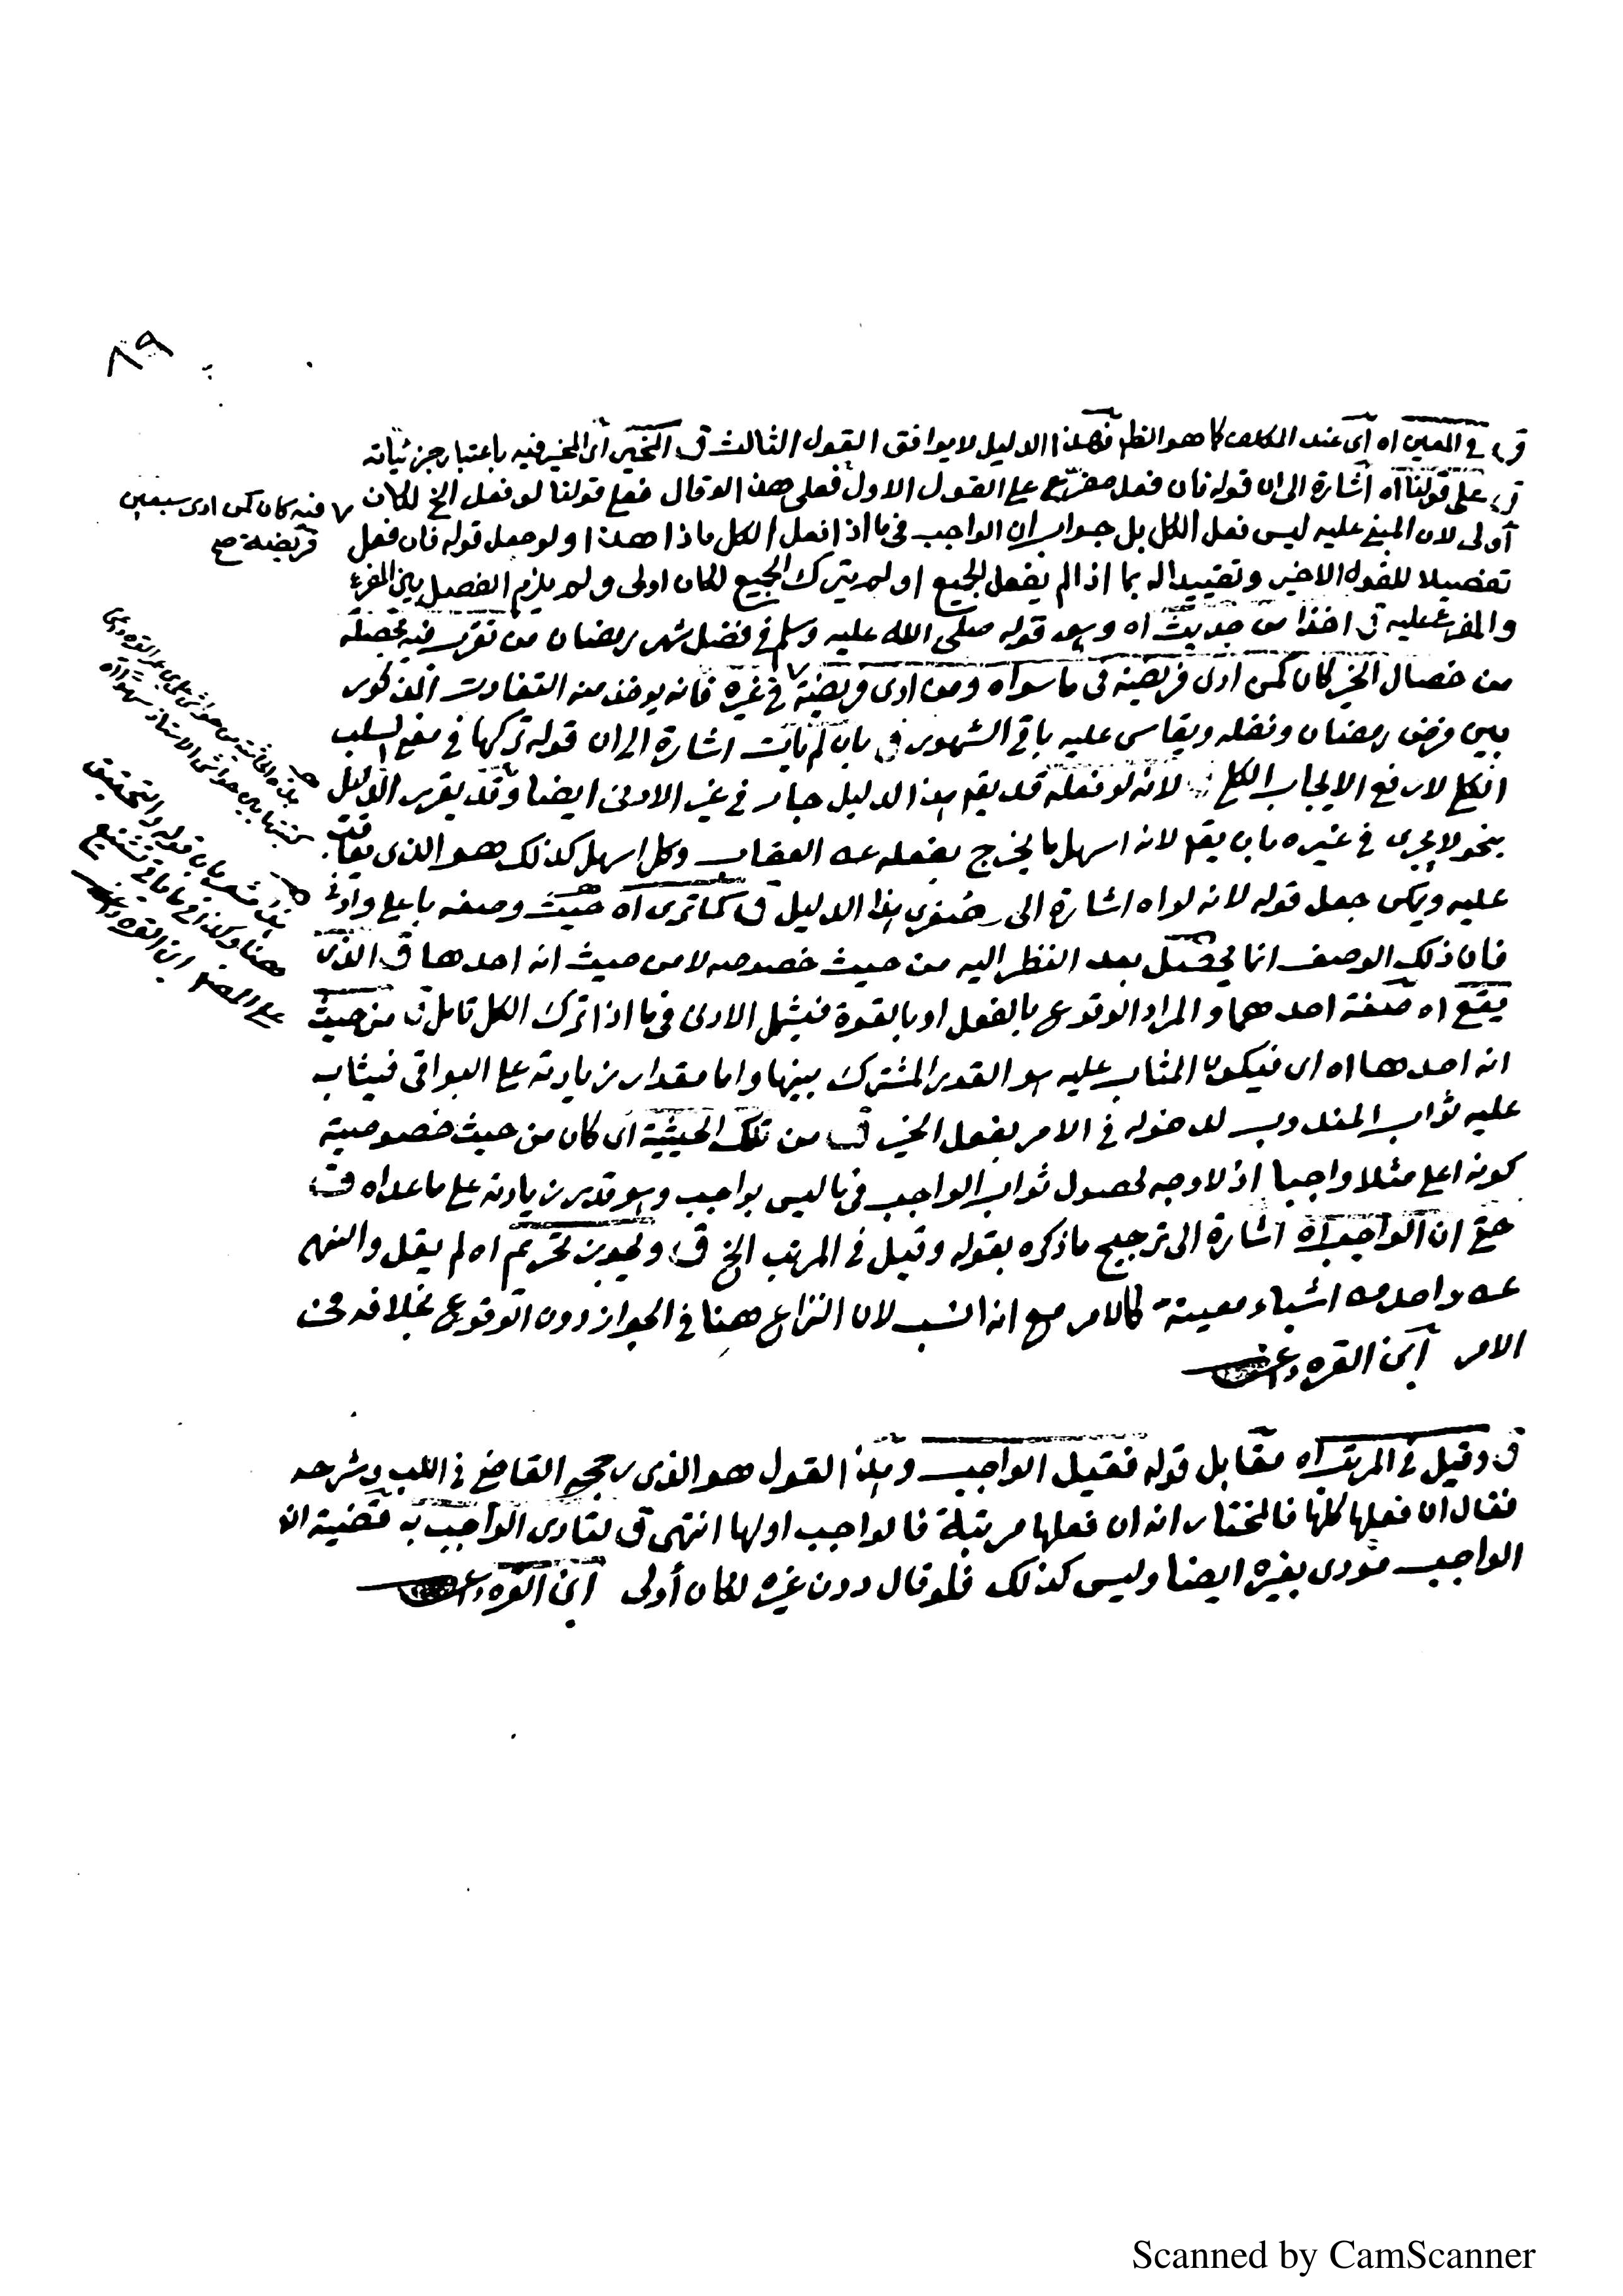 ٨٩
ق في المعين اه أي عند المكلف كما هو الظاهر فهذا الدليل لا يوافق القول الثالث ق المخير أي المخير فيه باعتبار جزئياته
ق على قولنا اه اشارة الى ان قوله فان فعل مفرع على القول الاول فعلى هذا لو قال فعلى قولنا لو فعل الخ لكان
أولى لان المبني عليه ليس فعل الكل بل جواب ان الواجب فيما اذا فعل الكل ماذا هذا ولو جعل قوله فان فعل
تفصيلا للقول الاخير وتقييدا له بما اذا لم يفعل الجميع او لم يترك الجميع لكان اولى ولم يلزم الفصل بين المفرع
والمفرع عليه ق اخذا من حديث اه وهو قوله صلى الله عليه وسلم في فضل شهر رمضان من تقرب فيه بخصلة
من خصال الخير كان كمن ادى فريضة في ما سواه ومن ادى فريضة ٧ في غيره فانه يوخذ منه التفاوت المذكور
بين فرض رمضان ونفله ويقاس عليه باقي الشهور ق بان لم يأت اشارة الى ان قوله تركها في معنى السلب
الكلي لا رفع الايجاب الكلي ق لانه لو فعله قد يقال هذا الدليل جار في غير الادنى ايضا وقد يقرر الدليل
بنحو لا يجرى في غيره بان يقال لانه اسهل ما يخرج بفعله عن العقاب وكل اسهل كذلك هو الذى يعاقب
عليه ويمكن جعل قوله لانه لو اه اشارة الى صغرى هذا الدليل ق كما ترى اه حيث وصفه باعلى وادنى
فان ذلك الوصف انما يحصل بعد النظر اليه من حيث خصوصه لا من حيث انه احدها ق الذى
يقع اه صفة احدهما والمراد الوقوع بالفعل او بالقوة فيشمل الادنى فيما اذا ترك الكل تامل ق من حيث
انه احدها اه اى فيكون المثاب عليه هو القدر المشترك بينها واما مقدار زيادته على البواقى فيثاب
عليه ثواب المندوب لدخوله في الامر بفعل الخير ق من تلك الحيثية اى كان من حيث خصوصية
كونه اعلى مثلا واجبا اذ لا وجه لحصول ثواب الواجب فيما ليس بواجب وهو قدر زيادته على ما عداه ق
حتى ان الواجب اه اشارة الى ترجيح ما ذكره بقوله وقيل في المرتب الخ ق ويجوز تحريم اه لم يقل والنهى
عن واحد من اشياء معينة كالامر مع انه انسب لان النزاع هنا في الجواز دون الوقوع بخلافه في
الامر ابن القره داغى
ق وقيل في المرتب اه مقابل قوله فقيل الواجب وهذا القول هو الذى رجحه القاضى في اللب وشرحه
فقال ان فعلها كلها فالمختار انه ان فعلها مرتبة فالواجب اولها انتهى ق لتادى الواجب به قضيته ان
الواجب مؤدى بغيره ايضا وليس كذلك فلو قال دون غيره لكان أولى ابن القره داغى
٧ فيه كان كمن ادى سبعين
فريضة صح